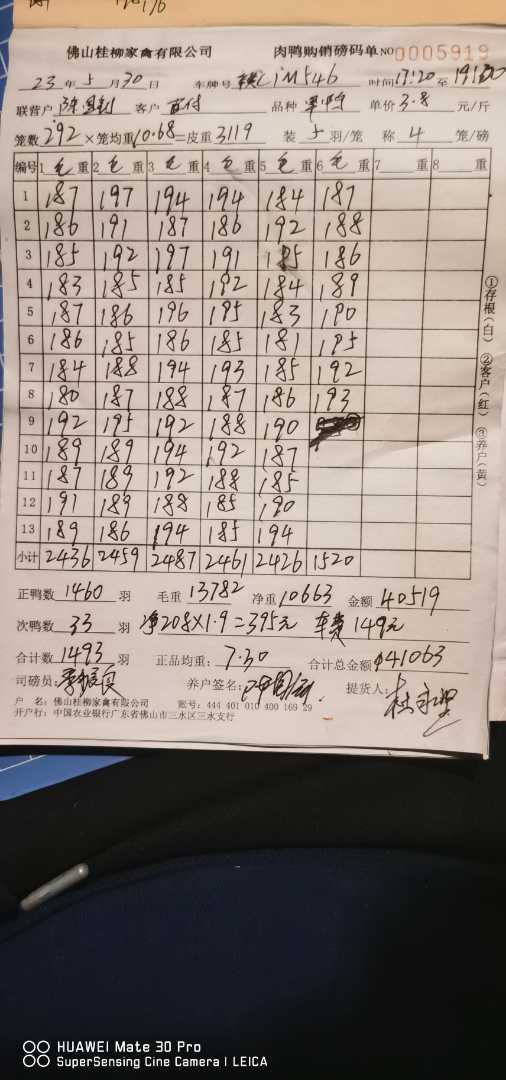 佛山桂柳家禽有限公司 肉鸭购销磅码单NO 0005919
23年5月30日 车牌号 M546 时间17:20至19:30
联营户 客户 品种 单价3.8元/斤
笼数292×笼均重10.68=皮重3119 装5羽/笼 称4笼/磅
编号 1毛重 2毛重 3毛重 4毛重 5毛重 6毛重 7重 8重
1 187 197 194 194 184 187
2 186 191 187 186 192 188
3 185 192 197 191 185 186
4 183 185 185 192 184 189
5 187 186 196 195 183 190
6 186 185 186 185 181 195
7 184 188 194 193 185 192
8 180 187 188 187 186 193
9 192 195 192 188 190
10 189 189 194 192 187
11 187 189 192 188 185
12 191 189 188 185 190
13 189 186 194 185 194
小计 2436 2459 2487 2461 2426 1520
正鸭数1460羽 毛重13782 净重10663 金额40519
次鸭数33羽 净208×1.9=395元 车费149元
合计数1493羽 正品均重:7.30 合计总金额41063
司磅员: 养户签名: 提货人:
户 名:佛山桂柳家禽有限公司 账号:444 401 010 400 169 29
开户行:中国农业银行广东省佛山市三水区三水支行
①存根(白) ②客户(红) ③养户(黄)
HUAWEI Mate 30 Pro
SuperSensing Cine Camera | LEICA